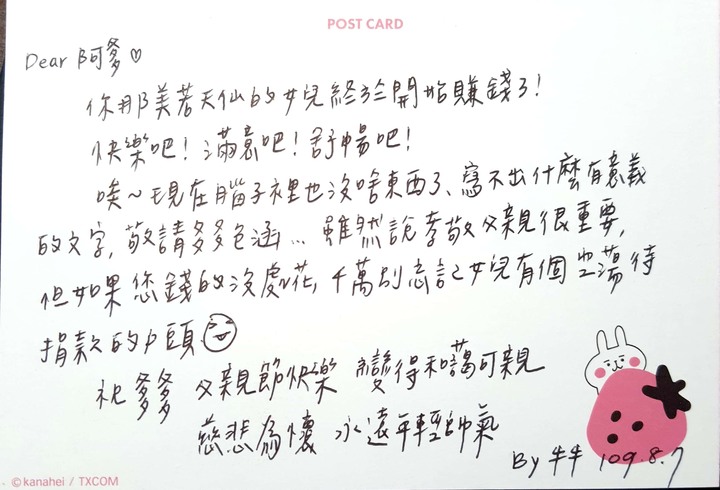 POST CARD
Dear 阿爹♡
你那美若天仙的女兒終於開始賺錢了!
快樂吧!滿意吧!舒暢吧!
唉~現在腦子裡也沒啥東西了、寫不出什麼有意義
的文字,敬請多多包涵... 雖然說孝敬父親很重要,
但如果您錢的沒處花,千萬別忘記女兒有個空蕩待
捐款的戶頭
祝爹爹 父親節快樂 變得和藹可親
慈悲為懷 永遠年輕帥氣
By 牛牛 109.8.7
©kanahei / TXCOM